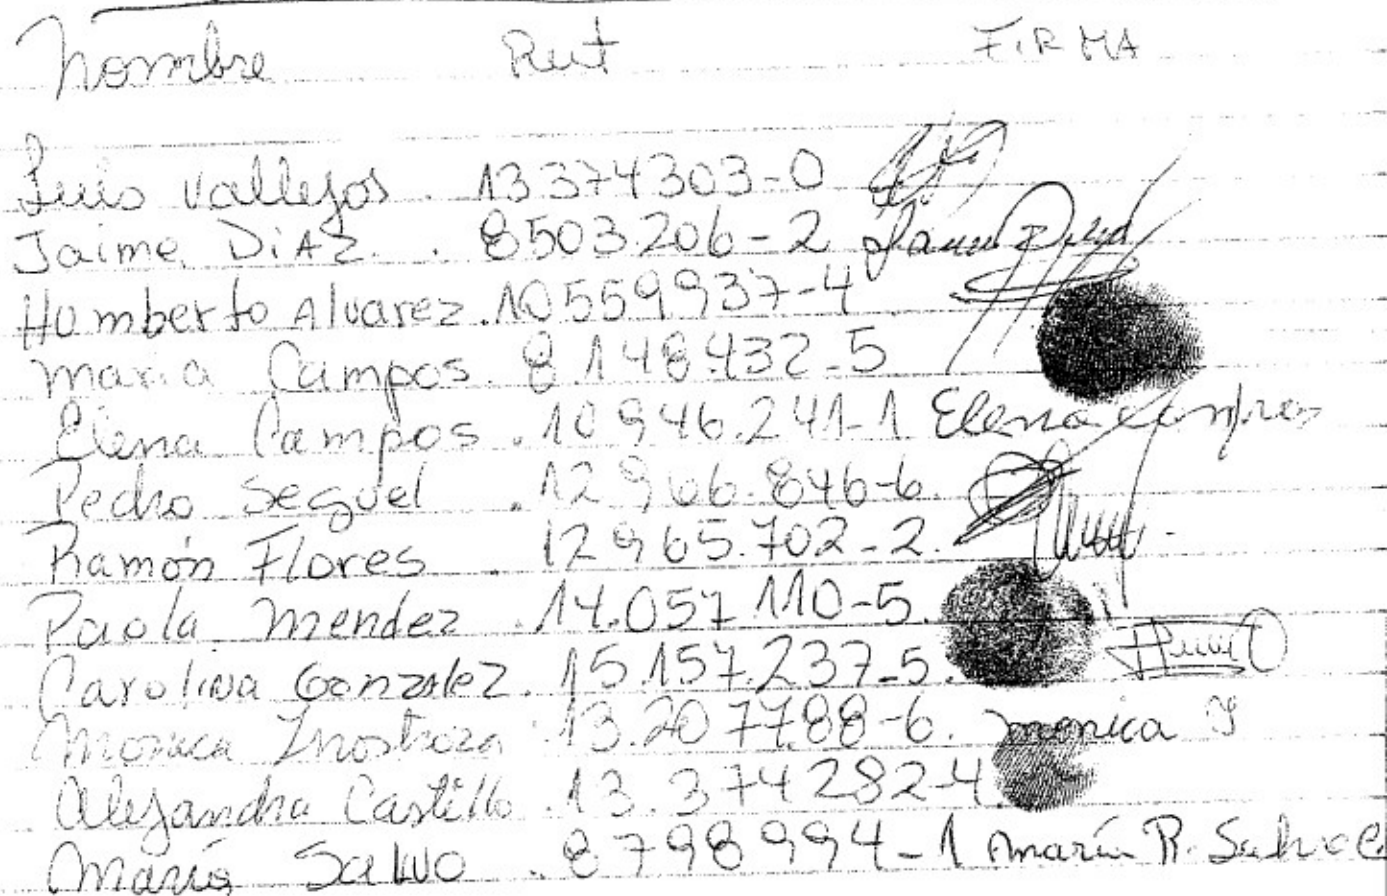 Nombre Rut FIRMA
Luis Vallejos. 13374303-0
Jaime DiAZ. . 8503.206-2 Jaime Diaz
Humberto Alvarez. 10559937-4
Maria Campos. 8.148.432-5
Elena Campos. 10946.241-1 Elena Campos
Pedro Seguel . 12966.846-6.
Ramón Flores . 12965.702-2.
Paola Mendez . 14.057 110-5.
Carolina Gonzalez. 15.157.237-5.
Monica Inostroza . 13.207788-6. monica I
Alejandra Castillo. 13.374282-4
Maria Salvo . 8798994-1 María R. Salvo C